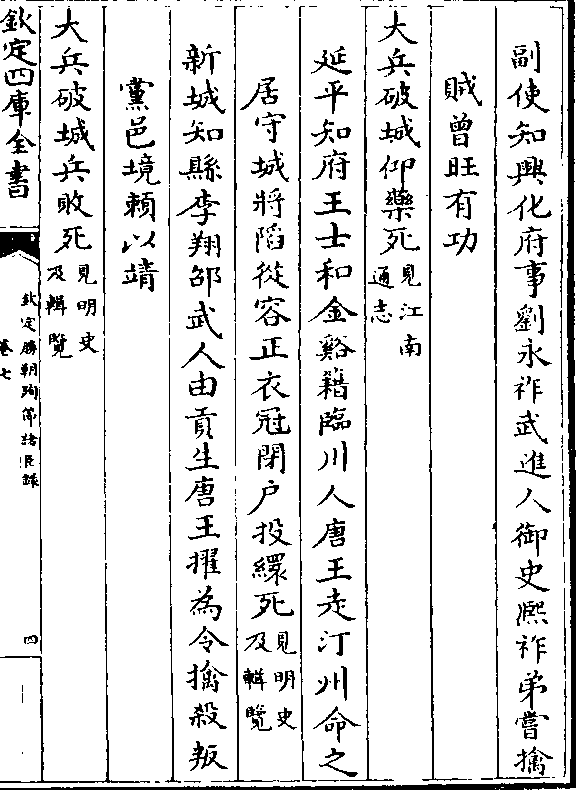 副使知興化府事劉永祚武進人御史熈祚弟嘗擒
賊曾旺有功
大兵破城仰藥死見江南
通志
延平知府王士和金谿籍臨川人唐王走汀州命之
居守城將陷從容正衣冠閉户投繯死見明史
及輯覽
新城知縣李翔邵武人由貢生唐王擢為令擒殺叛
黨邑境賴以靖
大兵破城兵敗死見明史
及輯覽
欽定四庫全書
欽定勝朝殉節諸臣録
卷七
四